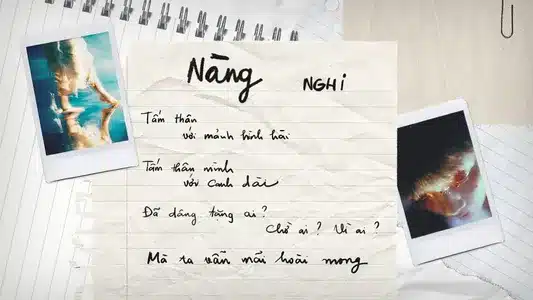 Nàng
NGHI
Tấm thân
với mảnh hình hài
Tấm thân mình
với canh dài
Đã dáng tặng ai?
Chờ ai? Vì ai?
Mà ra vẫn mãi hoài mong